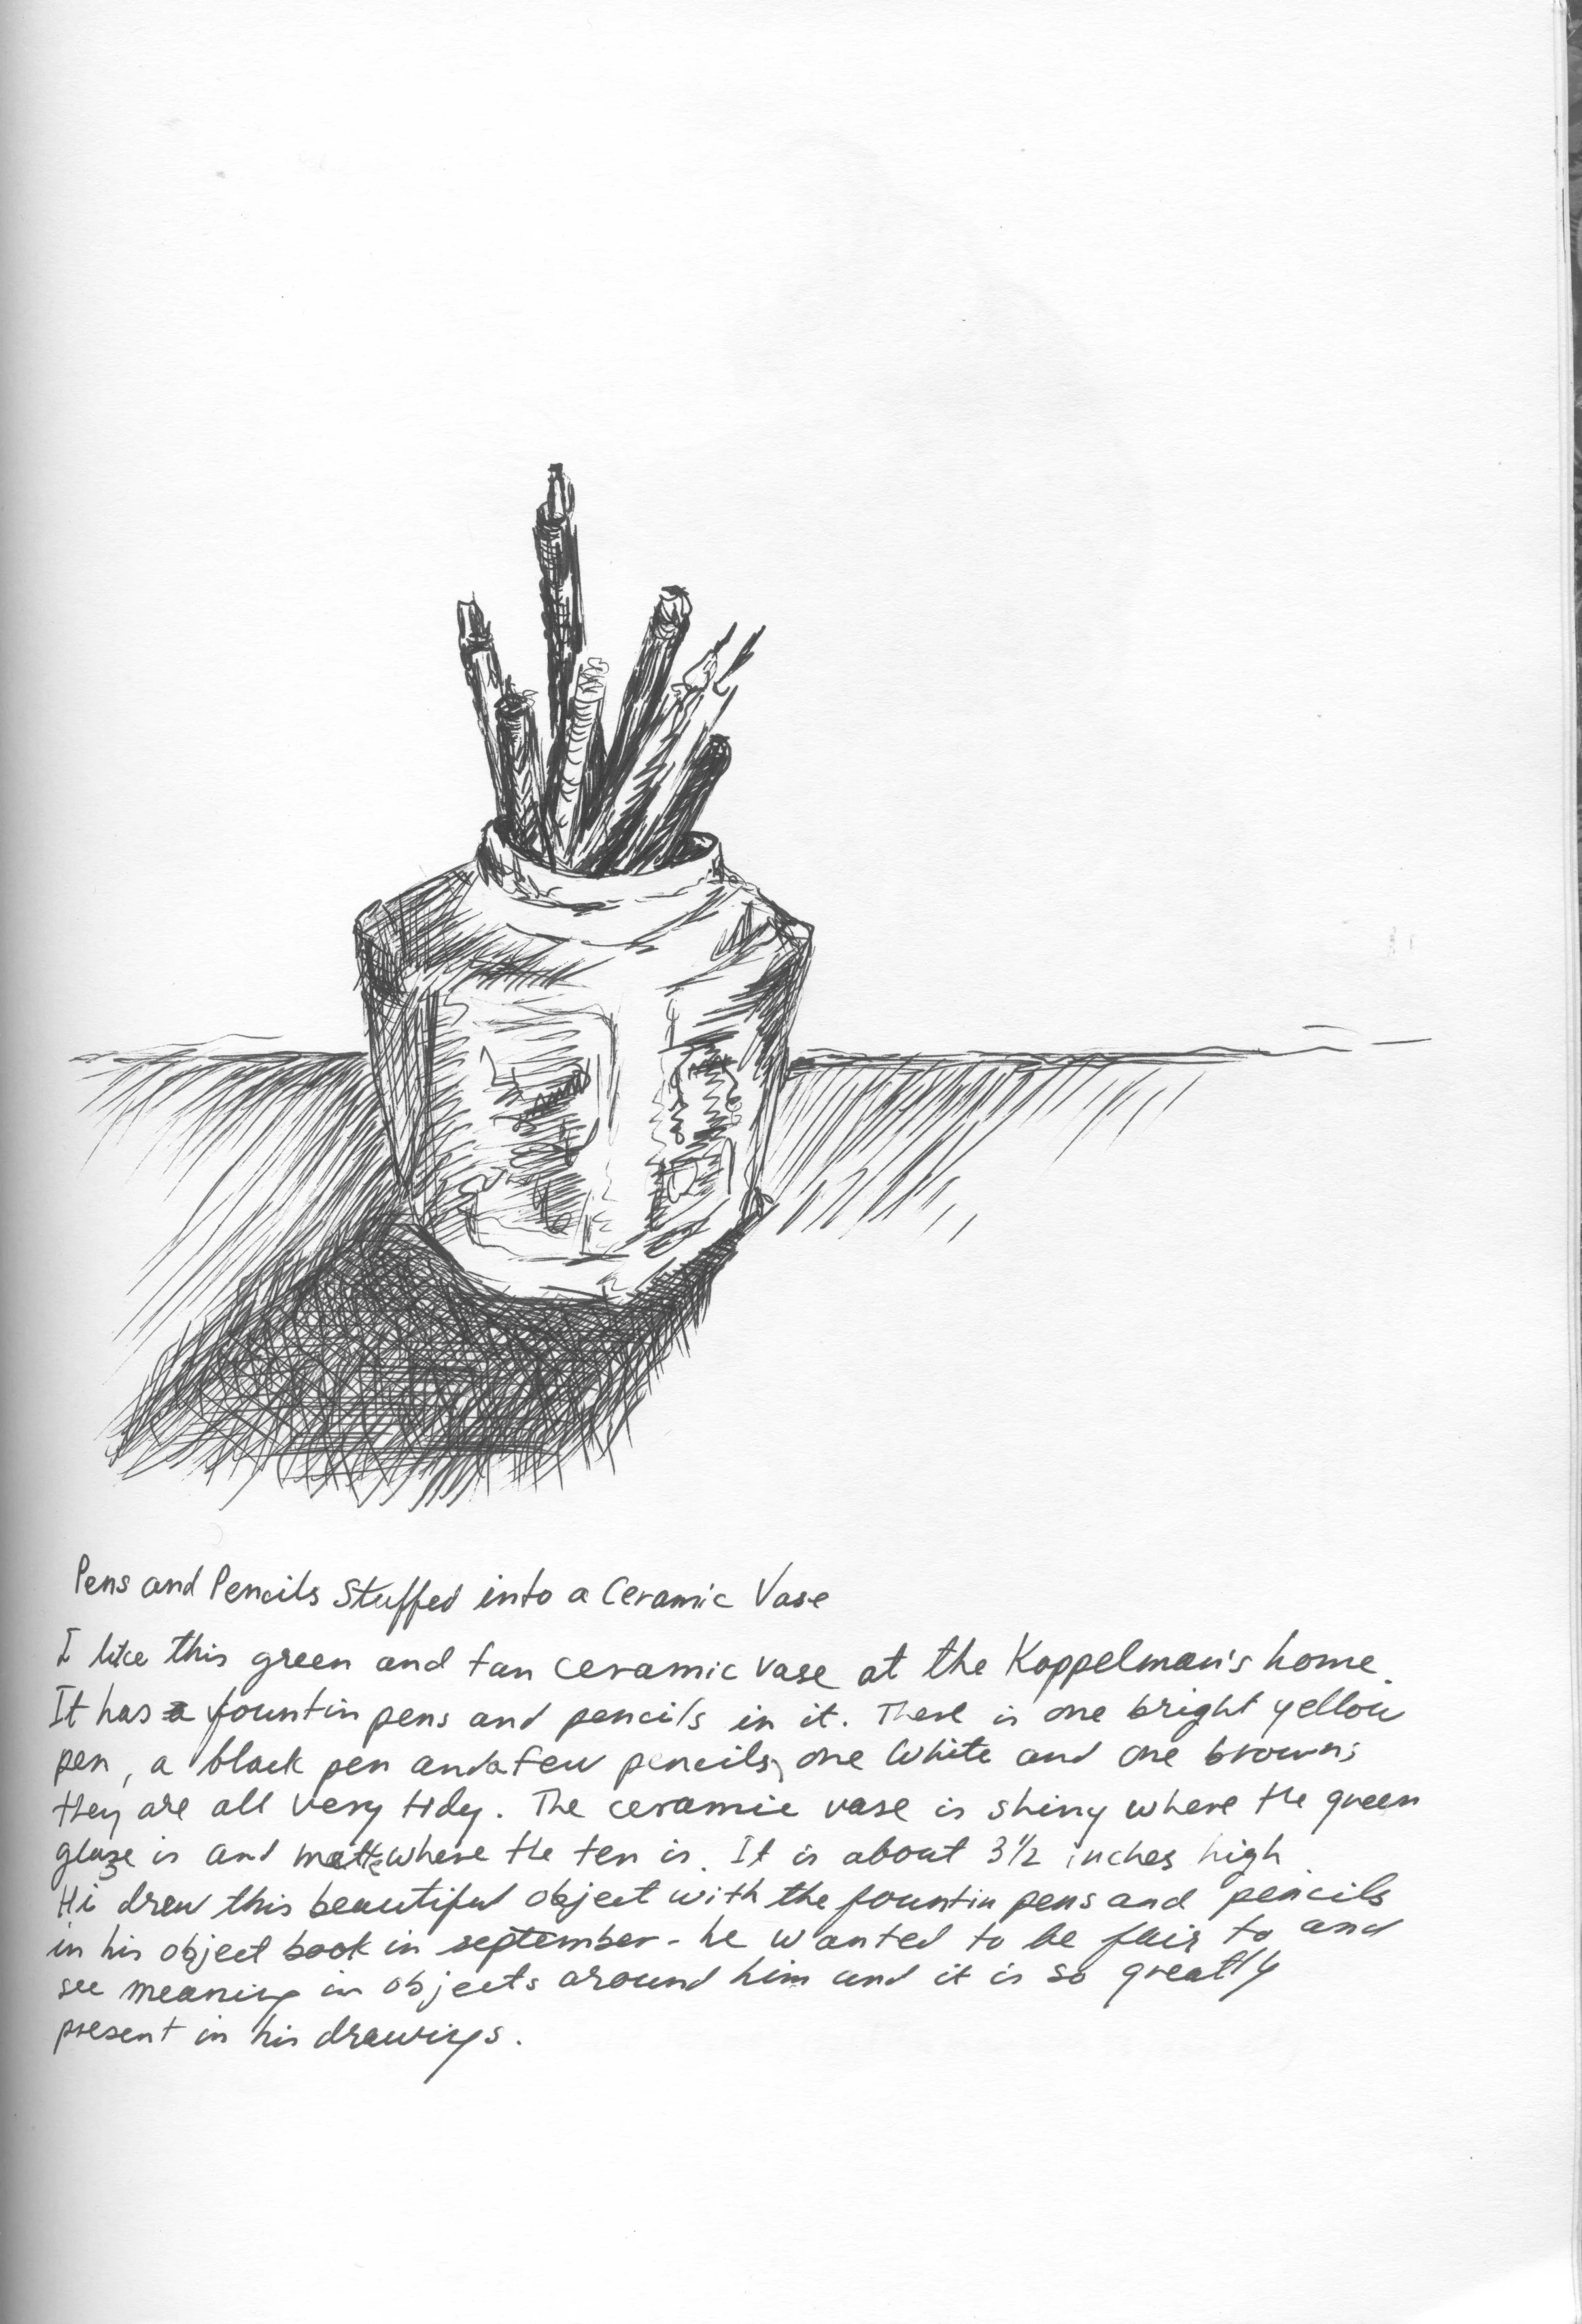 Pens and Pencils Stuffed into a Ceramic Vase
I like this green and tan ceramic vase at the Koppelman's home.
It has a fountin pens and pencils in it. There is one bright yellow
pen, a black pen and a few pencils, one white and one brown;
they are all very tidy. The ceramic vase is shiny where the green
glaze is and matte where the ten is. It is about 3 1/2 inches high.
Hi drew this beautiful object with the fountin pens and pencils
in his object book in september - he wanted to be fair to and
see meaning in objects around him and it is so greatly
present in his drawings.